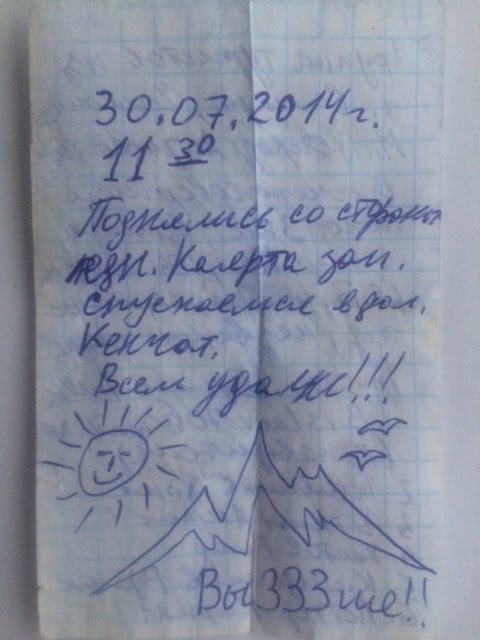 30.07.2014г.
11 30
Поднялись со стороны
лезн. Каярта зап.
спускаемся в дол.
Кенчат.
Всем удачи!!!
ВыЗЗЗше!!